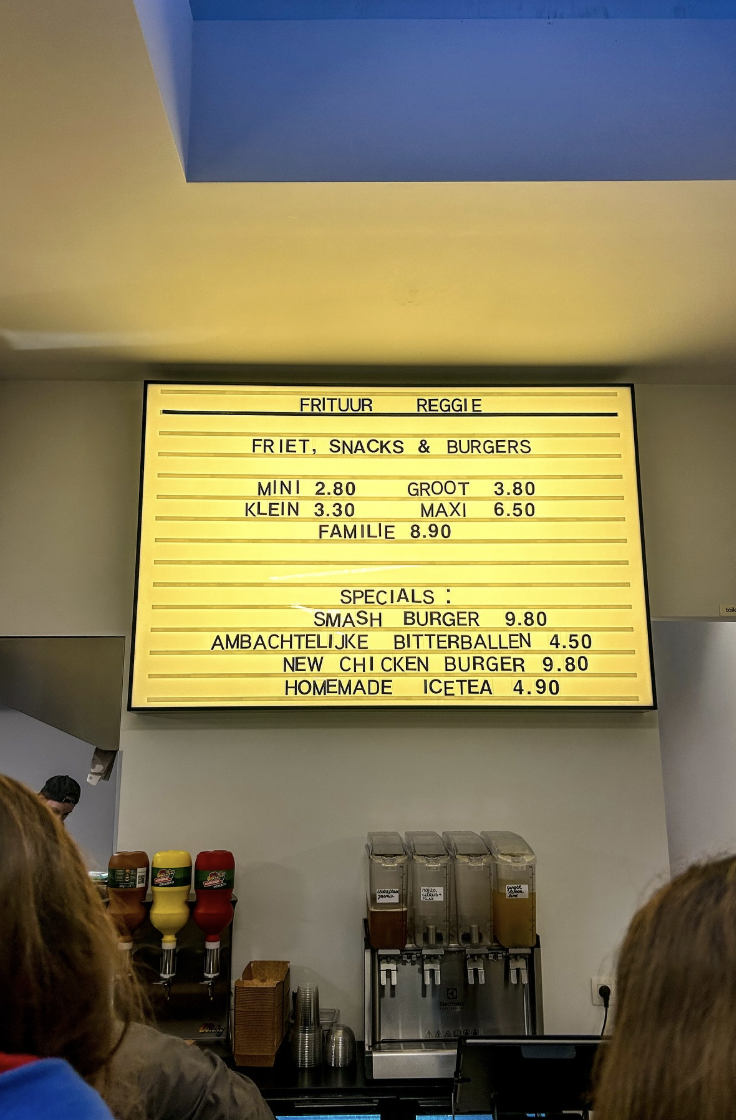 FRITUUR REGGIE
FRIET, SNACKS & BURGERS
MINI 2.80 GROOT 3.80
KLEIN 3.30 MAXI 6.50
FAMILIE 8.90
SPECIALS :
SMASH BURGER 9.80
AMBACHTELIJKE BITTERBALLEN 4.50
NEW CHICKEN BURGER 9.80
HOMEMADE ICETEA 4.90